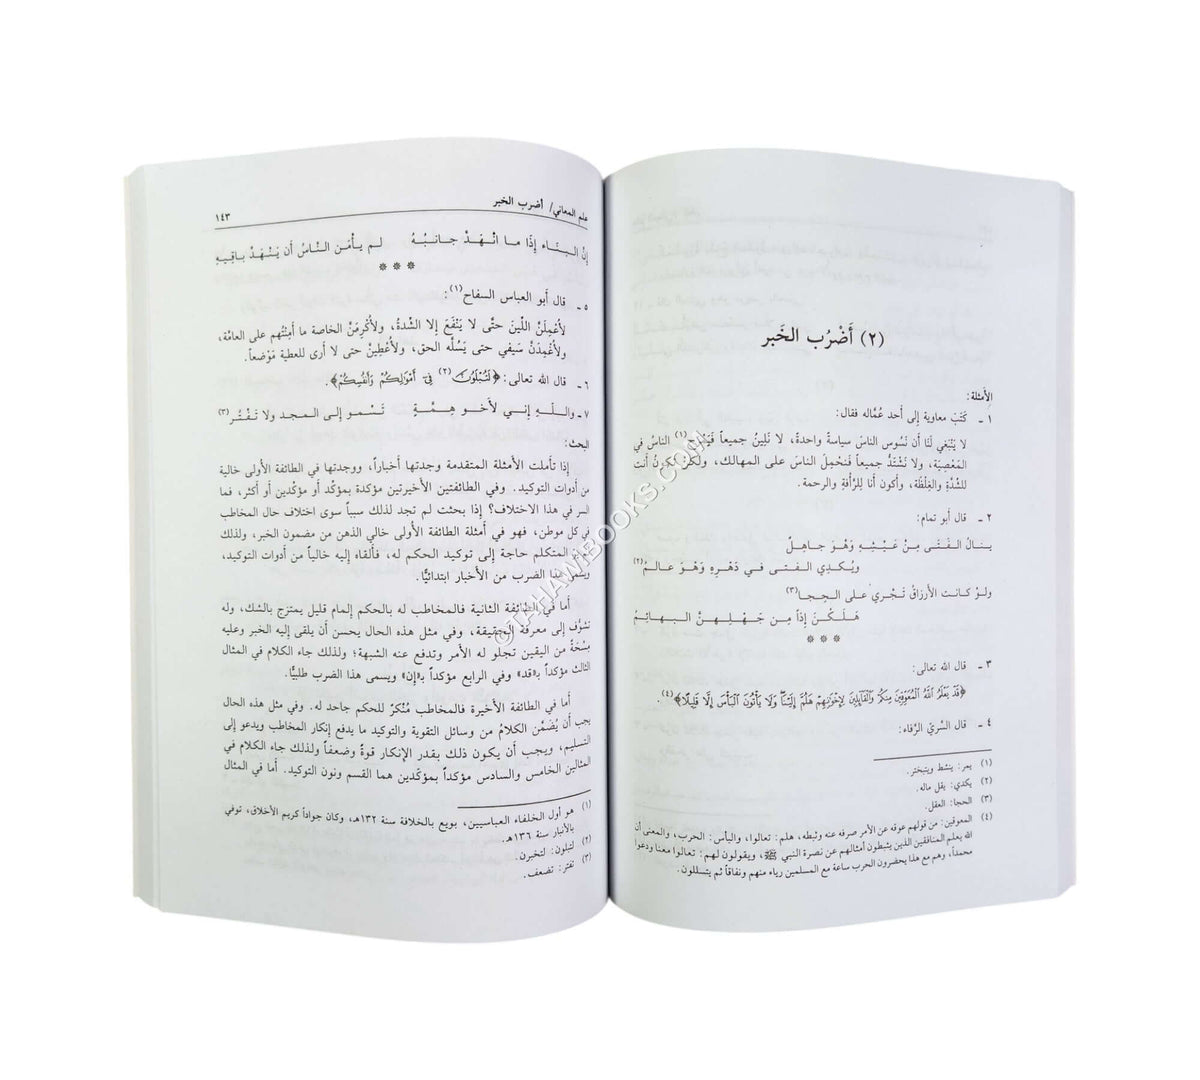 (٢) أَضْرُب الخَبر
الأمثلة:
١ ـ كَتَبَ معاوية إلى أحد عُمَّاله فقال:
لا يَنْبَغي لنَا أن نَسُوس الناسَ سياسةً واحدة، لا نَلِينُ جميعاً (١) الناسُ في
المَعْصِيَة، ولا نَشْتَدُّ جميعاً فَنَحْمِلُ الناسَ على المهالك، ولكنْ تكُونُ أنت
للشِّدَّةِ والغِلْظَة، وأكون أنا لِلرَّأفةِ والرحمة.
٢ ـ قال أبو تمام:
ينـالُ الفَـتَـى مِـنْ عَـيْـشِـهِ وَهْـوَ جـاهِـلٌ
ويُكدِي الفتى في دَهْرِهِ وَهْوَ عالمُ (٢)
ولوْ كانت الأرزاقُ تَجْري على الحِجا (٣)
هَـلَـكْـنَ إذاً مِـن جَـهْـلِـهِـنَّ الـبـهـائِـمُ
* * *
٣ ـ قال الله تعالى:
﴿قَدْ يَعْلَمُ ٱللَّهُ ٱلْمُعَوِّقِينَ مِنكُمْ وَٱلْقَآئِلِينَ لِإِخْوَٰنِهِمْ هَلُمَّ إِلَيْنَا وَلَا يَأْتُونَ ٱلْبَأْسَ إِلَّا قَلِيلًا﴾ (٤).
٤ ـ قال السَّريّ الرَّفاء:
(١) يمر: ينشط ويتبختر.
(٢) يكدي: يقل ماله.
(٣) الحجا: العقل.
(٤) المعوقين: من قولهم عوقه عن الأمر صرفه عنه وثبطه، هلم: تعالوا، والبأس: الحرب، والمعنى أن
الله يعلم المنافقين الذين يثبطون أمثالهم عن نصرة النبي ﷺ، ويقولون لهم: تعالوا معنا ودعوا
محمداً، وهم مع هذا يحضرون الحرب ساعة مع المسلمين رياء منهم ونفاقاً ثم يتسللون.
علم المعاني/ أضرب الخبر ١٤٣
إنَّ الـبـنَـاء إذَا مـا انْـهَـدَّ جـانـبُـهُ لـم يـأْمَـن النَّـاسُ أن يَـنْـهَدَّ بـاقِـيـهِ
* * *
٥ ـ قال أبو العباس السفاح (١):
لأُعْمِلَنَّ اللِّينَ حتَّى لا يَنْفَعَ إلا الشِّدةُ، ولأُكْرِمَنَّ الخاصة ما أمِنْتُهم على العامَّة،
ولأُغْمِدَنَّ سَيفي حتى يَسُلَّه الحق، ولأُعْطِينَّ حتى لا أرى للعطية مَوْضعاً.
٦ ـ قال الله تعالى: ﴿لَتُبْلَوُنَّ (٢) فِىٓ أَمْوَٰلِكُمْ وَأَنفُسِكُمْ﴾.
٧ ـ واللهِ إنـي لأخـو هِـمَّـةٍ تَـسْـمـو إلى الـمـجد ولا تَـفْـتُـر (٣)
البحث:
إذا تأملت الأمثلة المتقدمة وجدتها أخباراً، ووجدتها في الطائفة الأولى خالية
من أدوات التوكيد. وفي الطائفتين الأخيرتين مؤكدة بمؤكد أو مؤكدين أو أكثر، فما
السر في هذا الاختلاف؟ إذا بحثت لم تجد لذلك سبباً سوى اختلاف حال المخاطب
في كل موطن، فهو في أمثلة الطائفة الأولى خالي الذهن من مضمون الخبر، ولذلك
المتكلم حاجة إلى توكيد الحكم له، فألقاه إليه خالياً من أدوات التوكيد،
ويسمى هذا الضرب من الأخبار ابتدائيًّا.
أما في الطائفة الثانية فالمخاطب له بالحكم إلمام قليل يمتزج بالشك، وله
تشوُّف إلى معرفة الحقيقة، وفي مثل هذه الحال يحسن أن يلقى إليه الخبر وعليه
مِسْحَةٌ من اليقين تجلو له الأمر وتدفع عنه الشبهة؛ ولذلك جاء الكلام في المثال
الثالث مؤكداً بـ«قد» وفي الرابع مؤكداً بـ«إن» ويسمى هذا الضرب طلبيًّا.
أما في الطائفة الأخيرة فالمخاطب مُنْكرٌ للحكم جاحد له. وفي مثل هذه الحال
يجب أن يُضَمَّن الكلامُ من وسائل التقوية والتوكيد ما يدفع إنكار المخاطب ويدعو إلى
التسليم، ويجب أن يكون ذلك بقدر الإنكار قوةً وضعفاً ولذلك جاء الكلام في
المثالين الخامس والسادس مؤكداً بمؤكدين هما القسم ونون التوكيد. أما في المثال
(١) هو أول الخلفاء العباسيين، بويع بالخلافة سنة ١٣٢هـ، وكان جواداً كريم الأخلاق، توفي
بالأنبار سنة ١٣٦هـ.
(٢) لتبلون: لتختبرن.
(٣) تفتر: تضعف.
HAWIBOOKS.COM